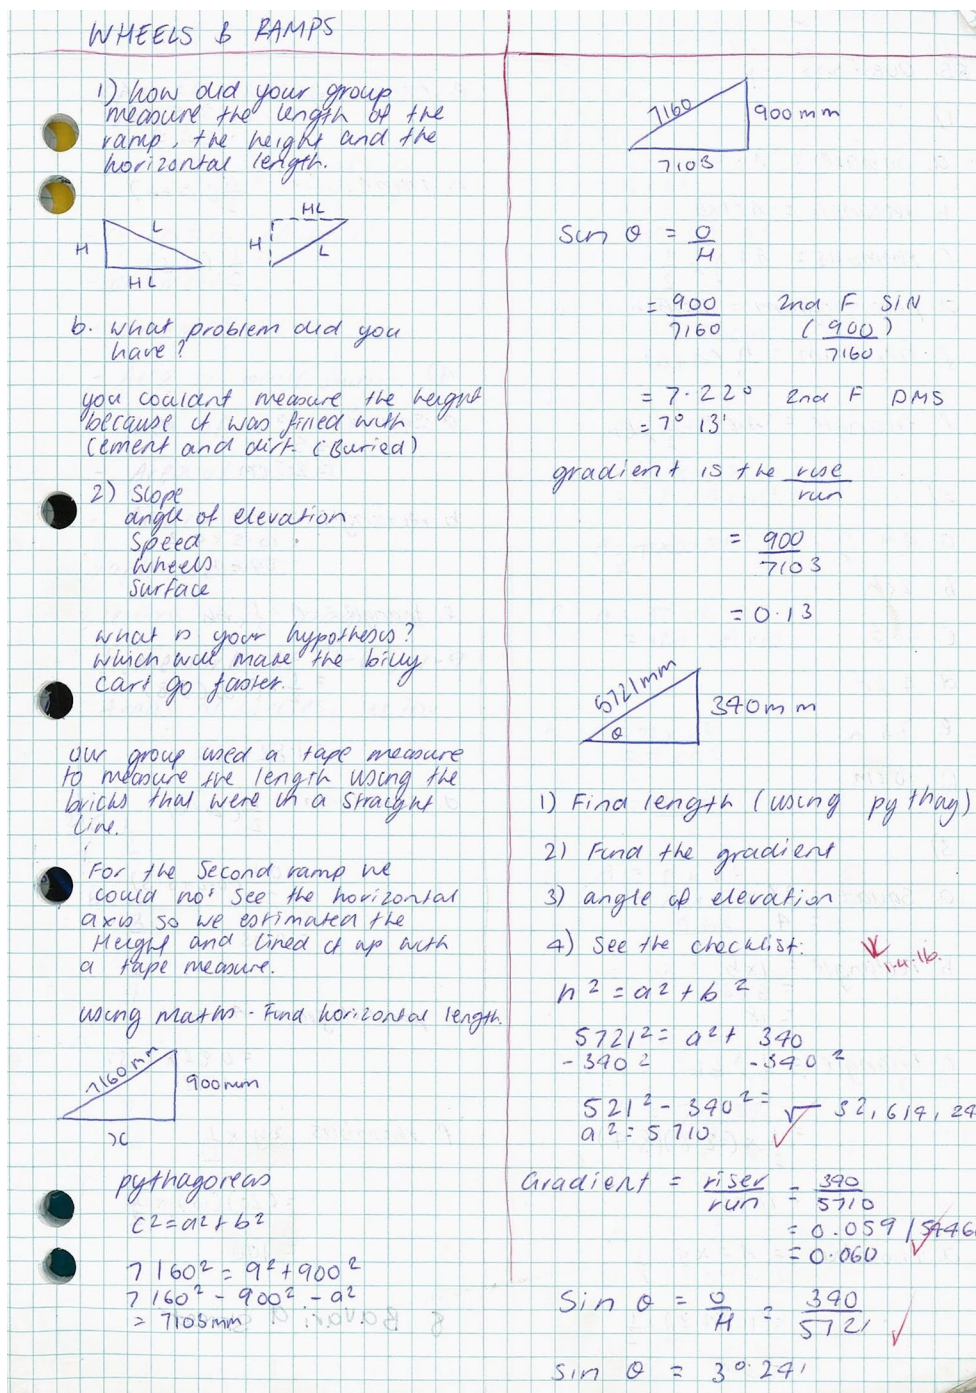 WHEELS & RAMPS
1) how did your group
measure the length of the
ramp, the height and the
horizontal length.
H L
HL
HL
H L
b. what problem did you
have?
you couldnt measure the height
because it was filled with
Cement and dirt. (Buried)
2) Slope
angle of elevation
Speed
Wheels
Surface
what is your hypothesis?
which will make the billy
cart go faster.
Our group used a tape measure
to measure the length using the
bricks that were in a straight
line.
For the Second ramp we
could not see the horizontal
axis so we estimated the
Height and lined it up with
a tape measure.
using maths - Find horizontal length.
7160mm
900mm
x
pythagoreas
c²=a²+b²
7160² = a²+900²
7160² - 900² - a²
= 7103mm
7160
900mm
7103
Sin θ = O/H
= 900/7160 2nd F SIN (900/7160)
= 7.22° 2nd F DMS
= 7° 13'
gradient is the rise/run
= 900/7103
= 0.13
5721mm
340mm
θ
1) Find length (using pythag)
2) Find the gradient
3) angle of elevation
4) See the checklist.
h² = a² + b²
5721² = a² + 340
-340² -340²
521² - 340² = √
a² = 5710
Gradient = riser/run = 340/5710
= 0.060
Sin θ = O/H = 340/5721
Sin θ = 3°.24'